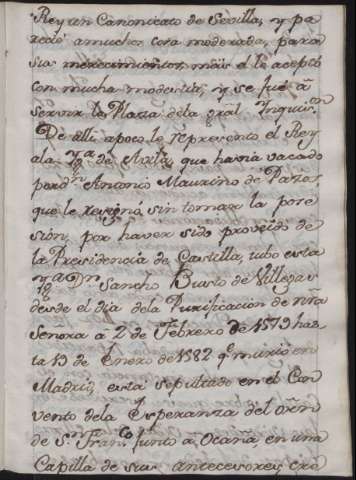 Rey un Canonicato de Sevilla, y pa
recio a muchos cosa moderada, para
sus merecimientos, mas el lo acepto
con mucha modestia, y se fue a
servir la Plaza de la gral Inquis.on
De alli a poco lo represento el Rey
ala Yg.a de Avila, que havia vacado
por d.n Antonio Mauriño de Pazos
que le resignó sin tomar la pose
sion, por haver sido proveido de
la Presidencia de Castilla, tubo esta
Yg.a D.n Sancho Busto de Villegas
desde el dia dela Purificacion de nřa
Señora á 2 de Febrero de 1579 has
ta 19 de Enero de 1582 q.e murio en
Madrid, está sepultado en el Con
vento dela Esperanza del orñ
de S.n Fran.co junto a Ocaña, en una
Capilla de sus antecesores, cro